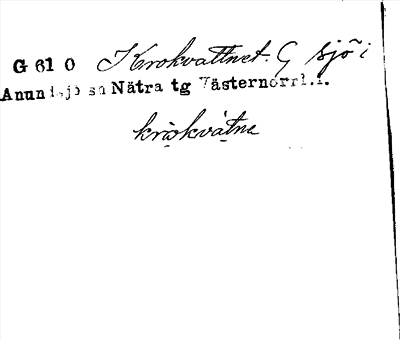 G 61 0 Krokvattnet. G sjö i
Anundsjö sn Nätra tg Västernorrl.l.
kròkvátne